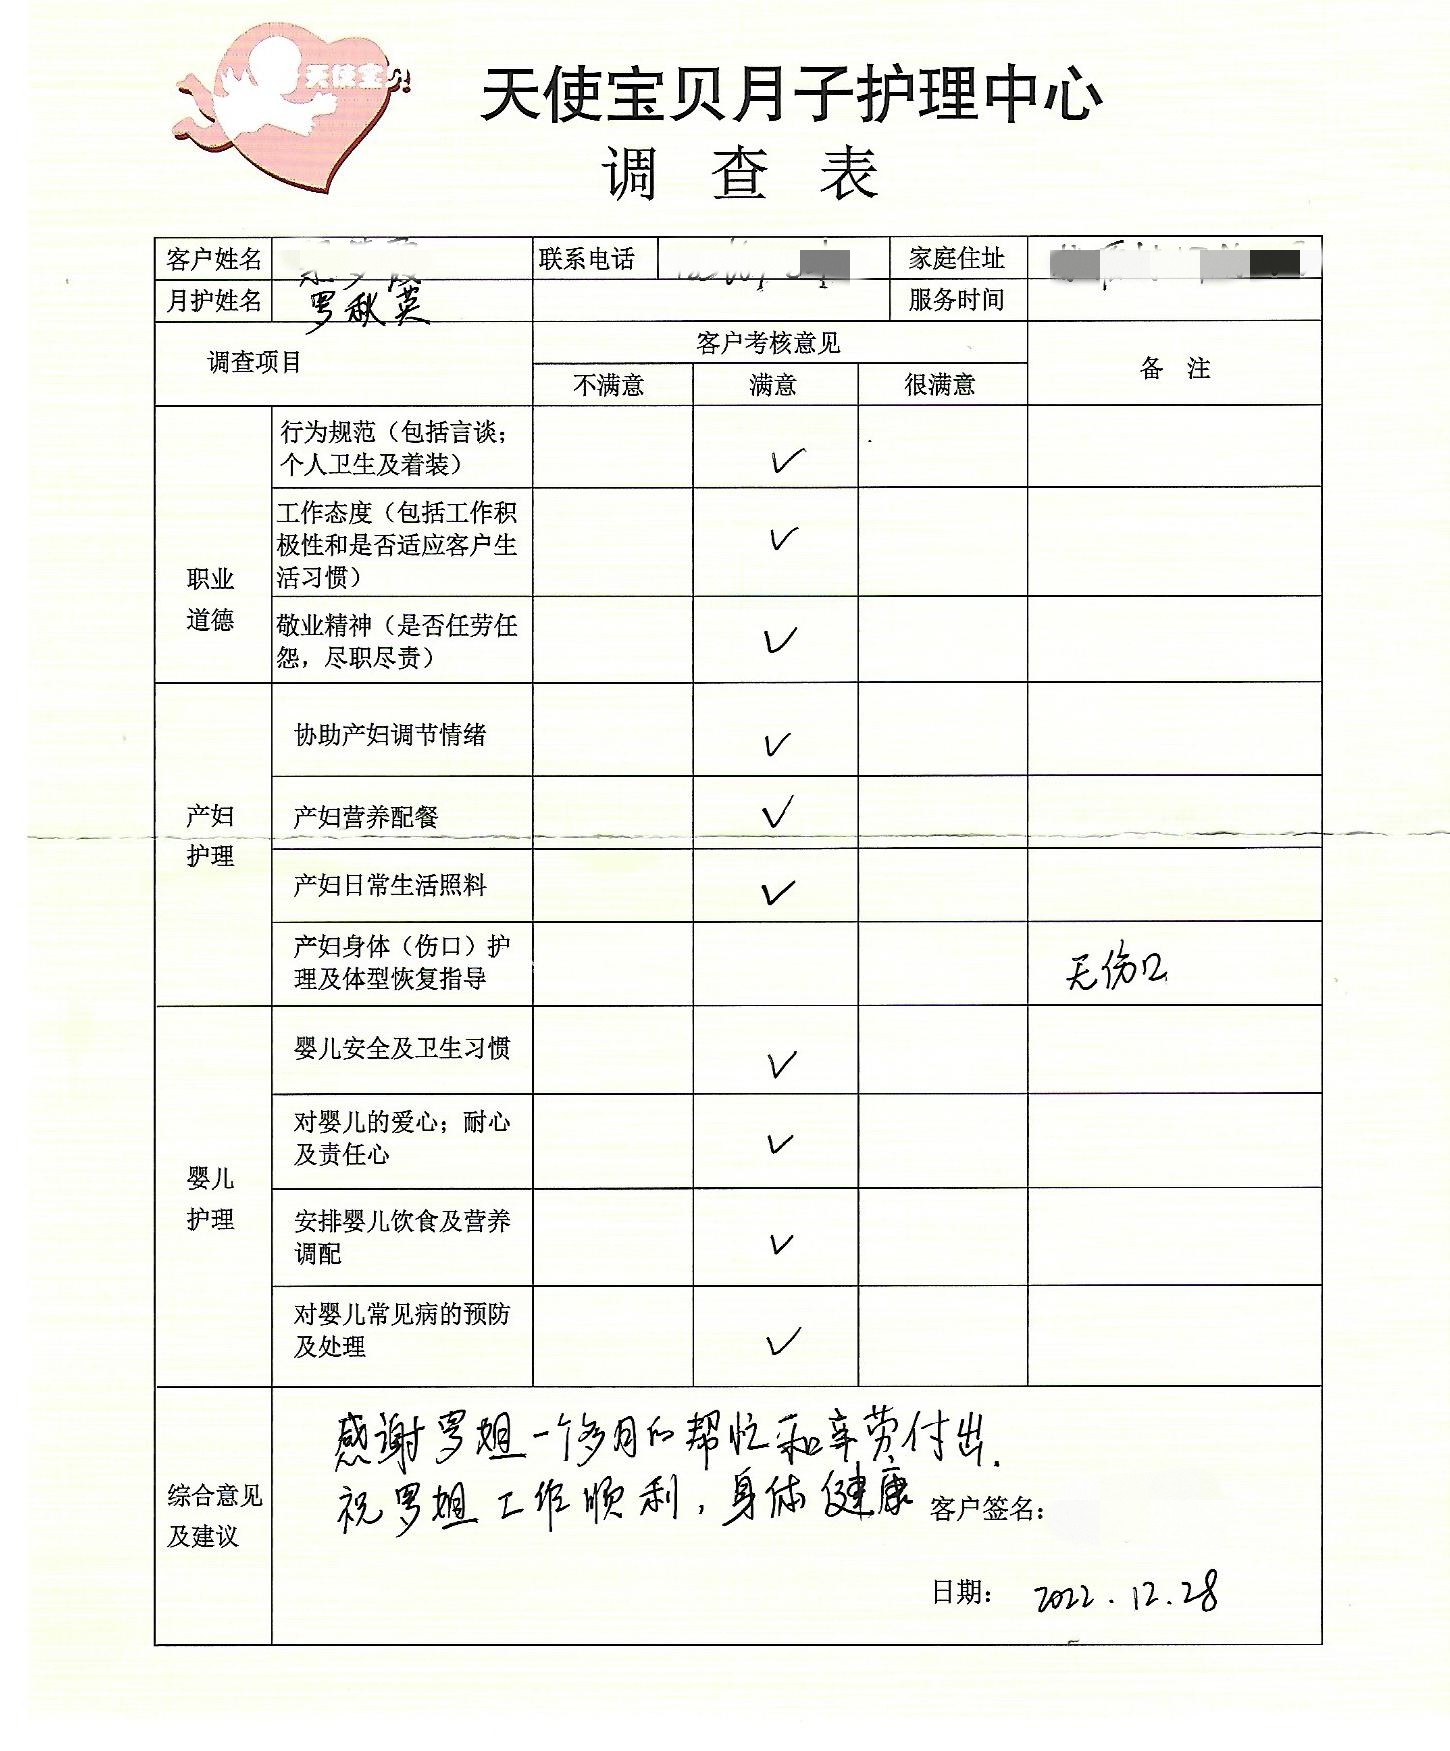 天使宝贝
天使宝贝月子护理中心
调 查 表
客户姓名 联系电话 家庭住址
月护姓名 罗秋英 服务时间
调查项目 客户考核意见 备 注
不满意 满意 很满意
职业
道德
行为规范（包括言谈；
个人卫生及着装） ✓
工作态度（包括工作积
极性和是否适应客户生
活习惯） ✓
敬业精神（是否任劳任
怨，尽职尽责） ✓
产妇
护理
协助产妇调节情绪 ✓
产妇营养配餐 ✓
产妇日常生活照料 ✓
产妇身体（伤口）护
理及体型恢复指导 无伤口
婴儿
护理
婴儿安全及卫生习惯 ✓
对婴儿的爱心；耐心
及责任心 ✓
安排婴儿饮食及营养
调配 ✓
对婴儿常见病的预防
及处理 ✓
综合意见
及建议
感谢罗姐一个多月的帮忙和辛劳付出.
祝罗姐工作顺利，身体健康 客户签名：
日期： 2022.12.28